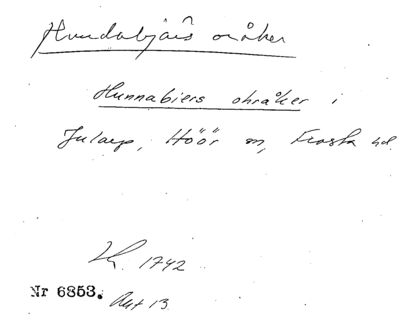 Hundabjärs oråker
Hunnabiers ohråker i
Jularp, Höör sn, Frosta hd
1742
Nr 6853. Akt 13